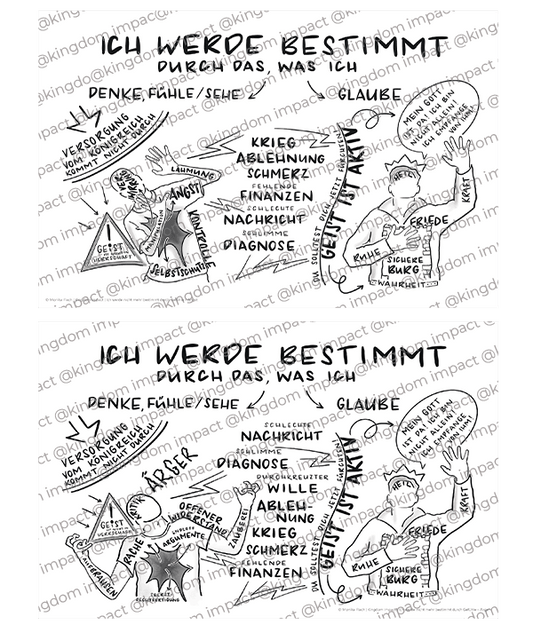 ICH WERDE BESTIMMT
DURCH DAS, WAS ICH
DENKE, FÜHLE/SEHE
GLAUBE
VERSORGUNG
VOM KÖNIGREICH
KOMMT NICHT DURCH
LÄHMUNG
ANGST
KONTROLLE
SELBSTSCHUTZ
!
GEIST
HERRSCHAFT
KRIEG
ABLEHNUNG
SCHMERZ
FEHLENDE
FINANZEN
SCHLECHTE
NACHRICHT
SCHLIMME
DIAGNOSE
DU SOLLTEST DICH JETZT FÜRCHTEN!
GEIST IST AKTIV
MEIN GOTT
IST DA! ICH BIN
NICHT ALLEIN!
ICH EMPFANGE
VON IHM!
HEILIG
KRAFT
FRIEDE
RUHE
SICHERE
BURG
WAHRHEIT
ICH WERDE BESTIMMT
DURCH DAS, WAS ICH
DENKE, FÜHLE/SEHE
GLAUBE
VERSORGUNG
VOM KÖNIGREICH
KOMMT NICHT DURCH
ÄRGER
KRITIK
!
GEIST
HERRSCHAFT
OFFENER
WIDERSTAND
ARGUMENTE
RACHE
ZAUBEREI
SELBST
RECHTFERTIGUNG
SCHLECHTE
NACHRICHT
SCHLIMME
DIAGNOSE
DURCHKREUZTER
WILLE
ABLEH-
NUNG
KRIEG
SCHMERZ
FEHLENDE
FINANZEN
DU SOLLTEST DICH JETZT FÜRCHTEN!
GEIST IST AKTIV
MEIN GOTT
IST DA! ICH BIN
NICHT ALLEIN!
ICH EMPFANGE
VON IHM!
HEILIG
KRAFT
FRIEDE
RUHE
SICHERE
BURG
WAHRHEIT
@kingdom impact